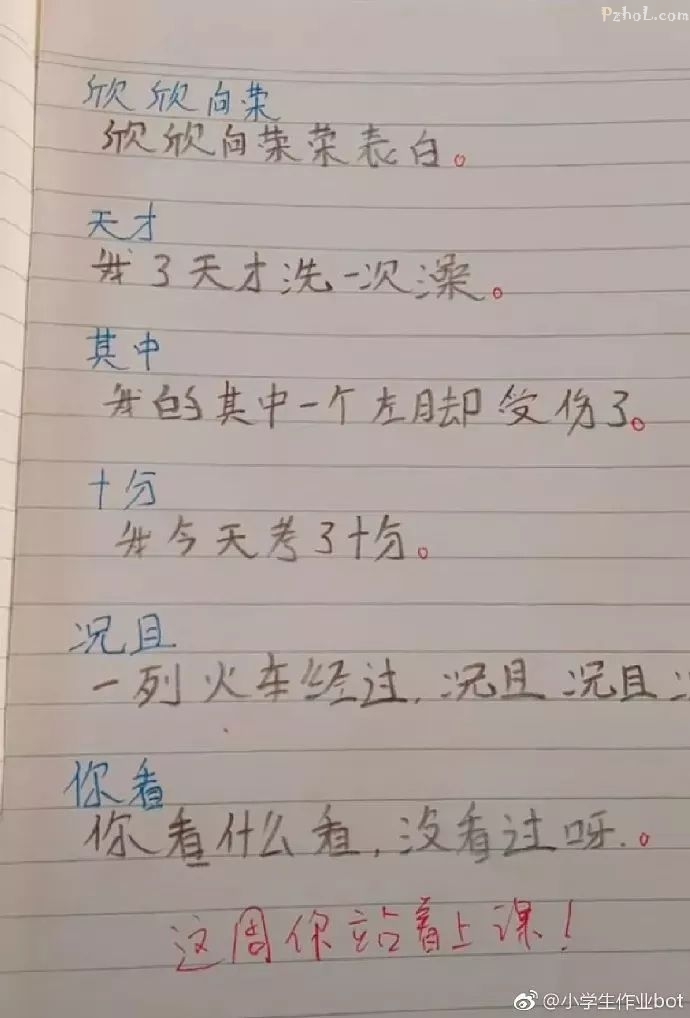 PzhoL.com
欣欣向荣
欣欣向荣荣表白。
天才
我3天才洗一次澡。
其中
我的其中一个左脚受伤了。
十分
我今天考了十分。
况且
一列火车经过,况且况且
你看
你看什么看,没看过呀。
这周你站着上课!
@小学生作业bot